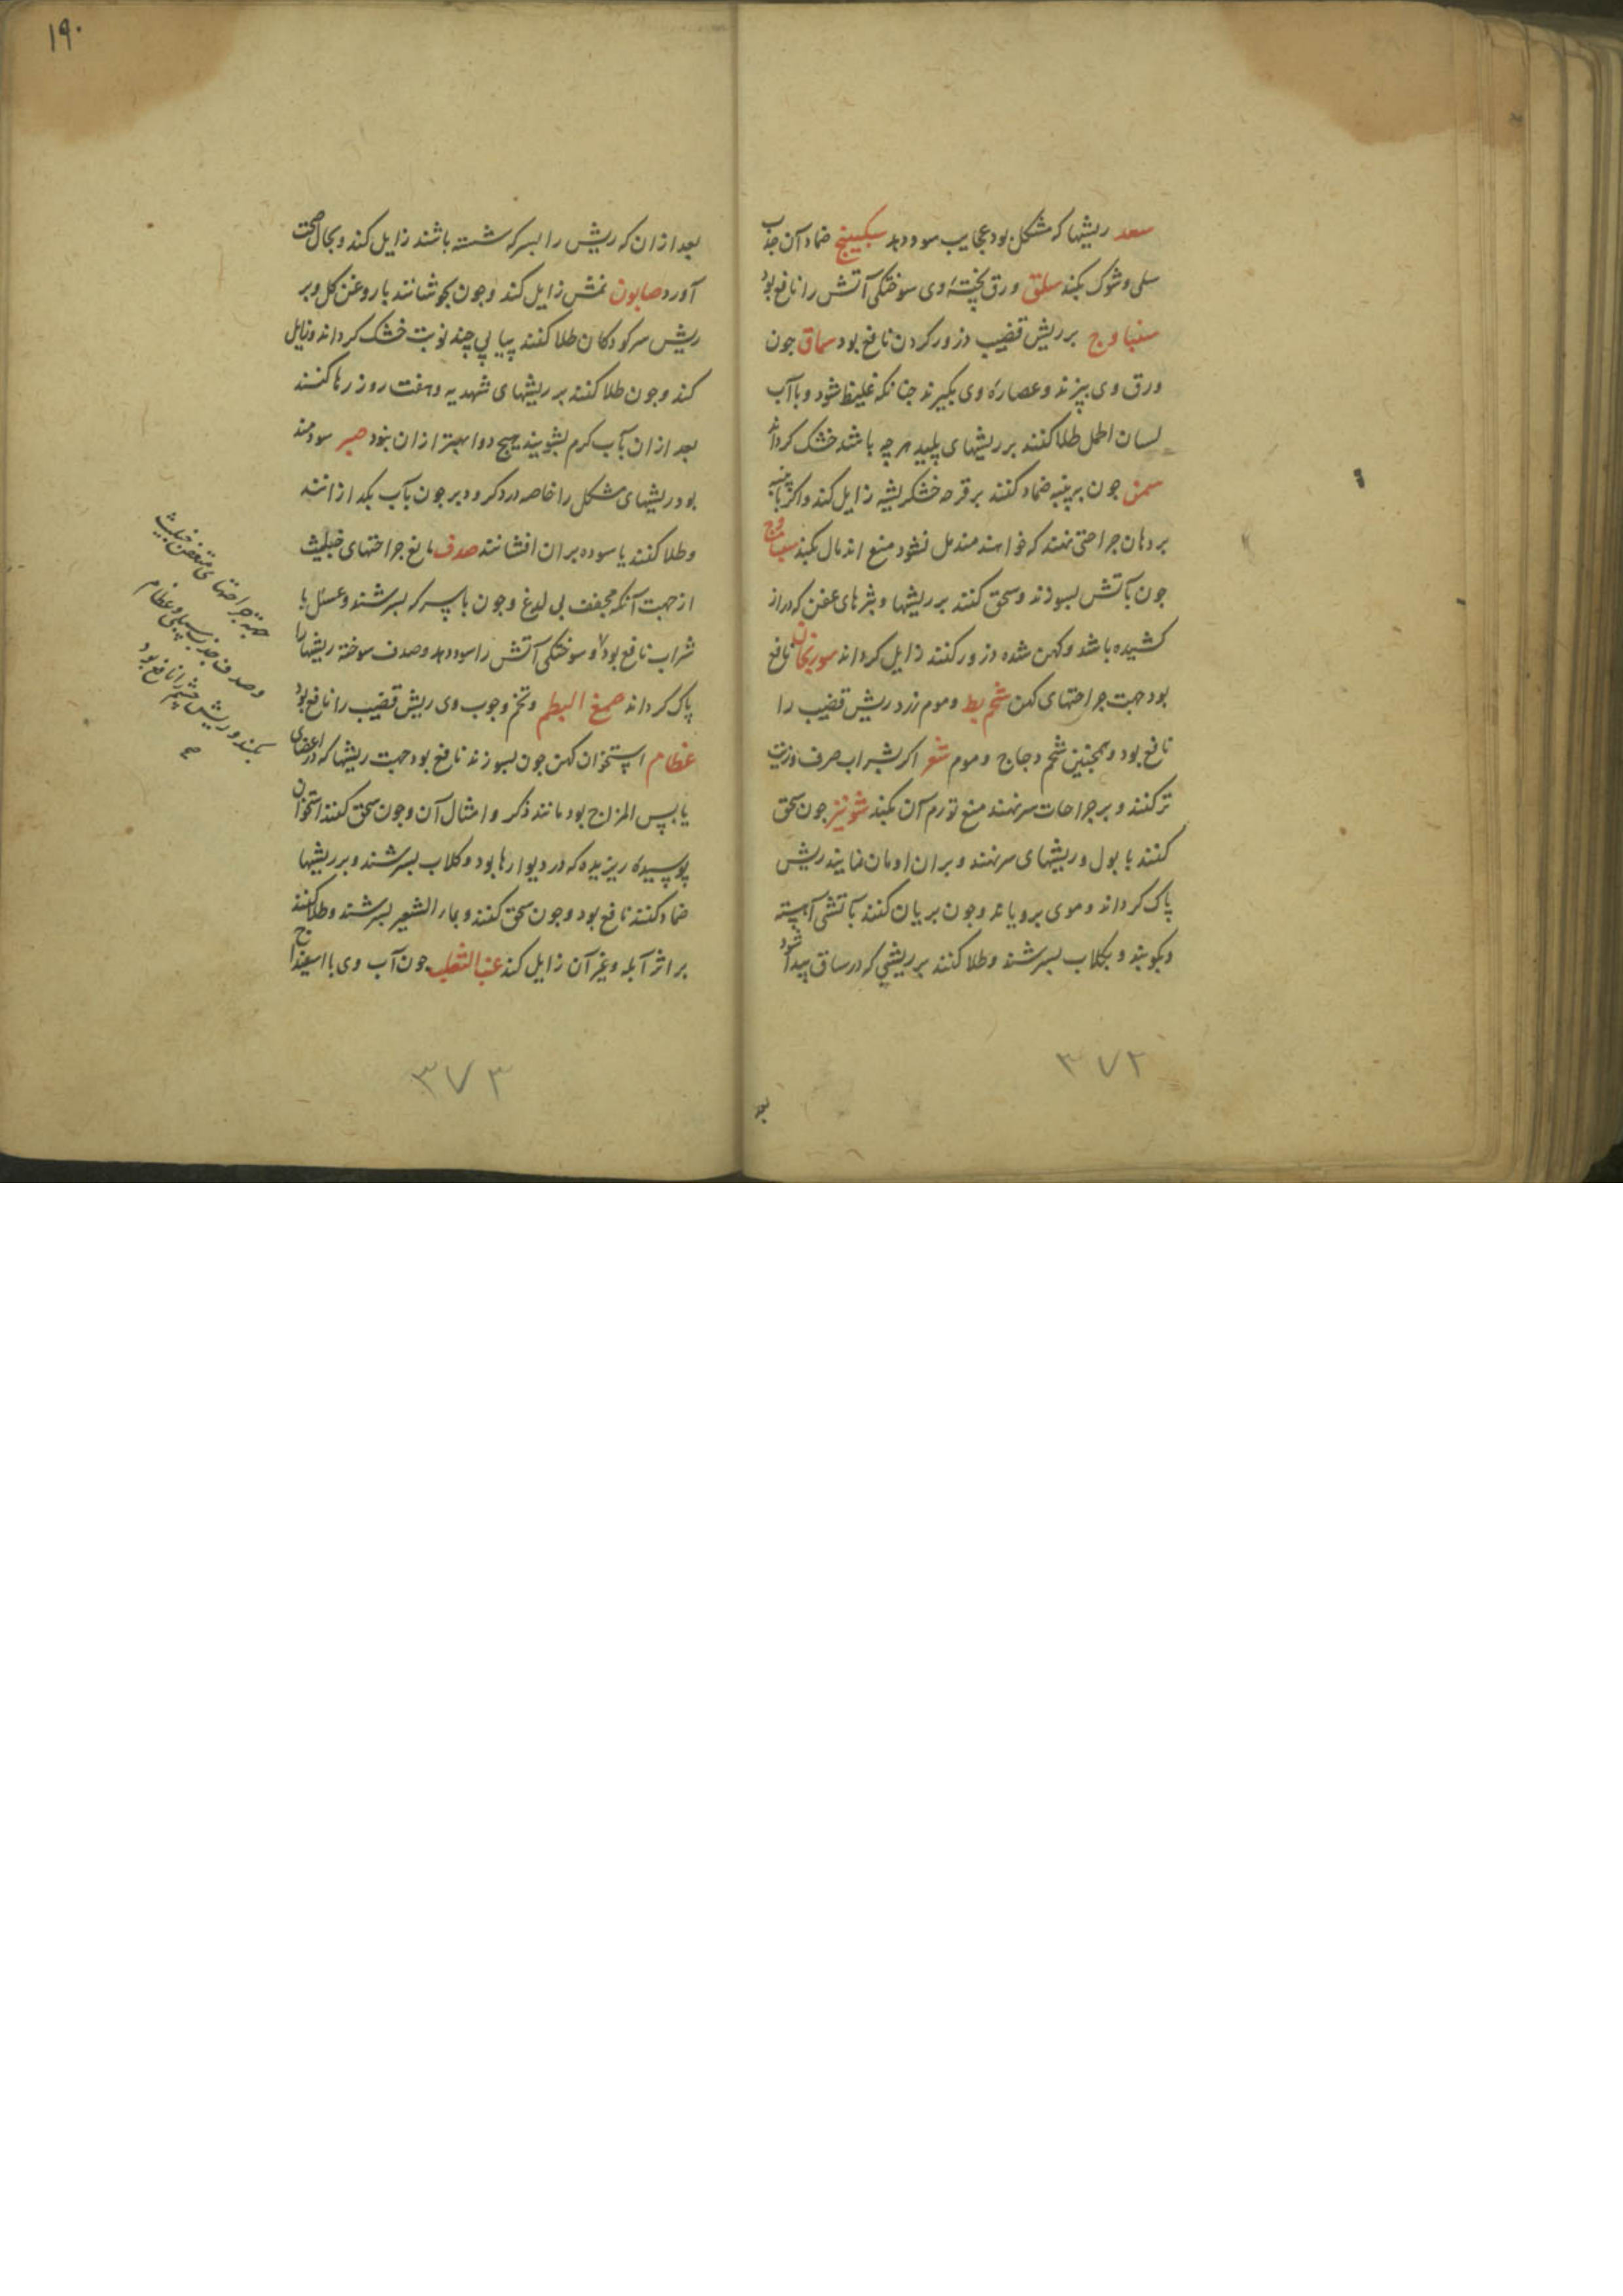 سعد ریشها که مشکل بود عجایب سود دهد سکبینج ضماد آن جذب
سلی و شوک بکند سلق ورق پختهٔ وی سوختکی آتش را نافع بود
سنباوج بر ریش قضیب ذرور کردن نافع بود سماق جون
ورق وی بپزند و عصارهٔ وی بکیرند جنانکه غلیظ شود و با آب
لسان الحمل طلا کنند بر ریشهای پلید هر چه باشد خشک کرداند
سمن جون بر پنبه ضماد کنند بر قرحه خشکریشه زایل کند و اکر با پنبه
بر دهان جراحتی نهند که خواهند مندمل نشود منع اندمال بکند
جون بآتش بسوزند و سحق کنند بر ریشها و بثرهای عفن که دراز
کشیده باشد و کهن شده ذرور کنند زایل کرداند سورنجان نافع
بود جهت جراحتهای کهن شحم بط و موم زرد ریش قضیب را
نافع بود و همجنین شحم دجاج و موم شعر اکر بشراب صرف و زیت
تر کنند و بر جراحات سر نهند منع تورم آن بکند شونیز جون سحق
کنند با بول و ریشهای سر نهند و بران ادمان نمایند ریش
پاک کرداند و موی برویاند و جون بریان کنند بآتشی آهسته
و بکوبند و بکلاب بسرشند و طلا کنند بر ریشی که در ساق پیدا شود
۳۷۲
بعد
۱۹۰
بعد ازان که ریش را بسرکه شسته باشند زایل کند و بحال صحت
آورد صابون نمش زایل کند و جون بجوشانند با روغن کل و بر
ریش سر کودکان طلا کنند پیاپی چند نوبت خشک کرداند و زایل
کند و جون طلا کنند بر ریشهای شهدیه و هفت روز رها کنند
بعد ازان بآب کرم بشویند هیج دوا بهتر ازان نبود صبر سودمند
بود ریشهای مشکل را خاصه در ذکر و دبر جون بآب بکدازانند
و طلا کنند یا سوده بران افشانند صدف نافع جراحتهای خبیث
از جهت آنکه مجفف بی لدغ و جون با سرکه بسرشند و عسل یا
شراب نافع بود و سوختکی آتش را سود دهد و صدف سوخته ریشها را
پاک کرداند صمغ البطم و تخم و جوب وی ریش قضیب را نافع بود
عظام استخوان کهن جون بسوزند نافع بود جهت ریشها که در اعضای
یابس المزاج بود مانند ذکر و امثال آن و جون سحق کنند استخوان
پوسیده ریزیده که در دیوارها بود و کلاب بسرشند و بر ریشها
ضماد کنند نافع بود و جون سحق کنند و بماء الشعیر بسرشند و طلا کنند
بر اثر آبله و غیر آن زایل کند عنب الثعلب جون آب وی با اسفیداج
۳۷۳
جهة جراحتهای متعفن خبیث
و صدف جذب سلی و عظام
بکند و ریش چشم را نافع بود